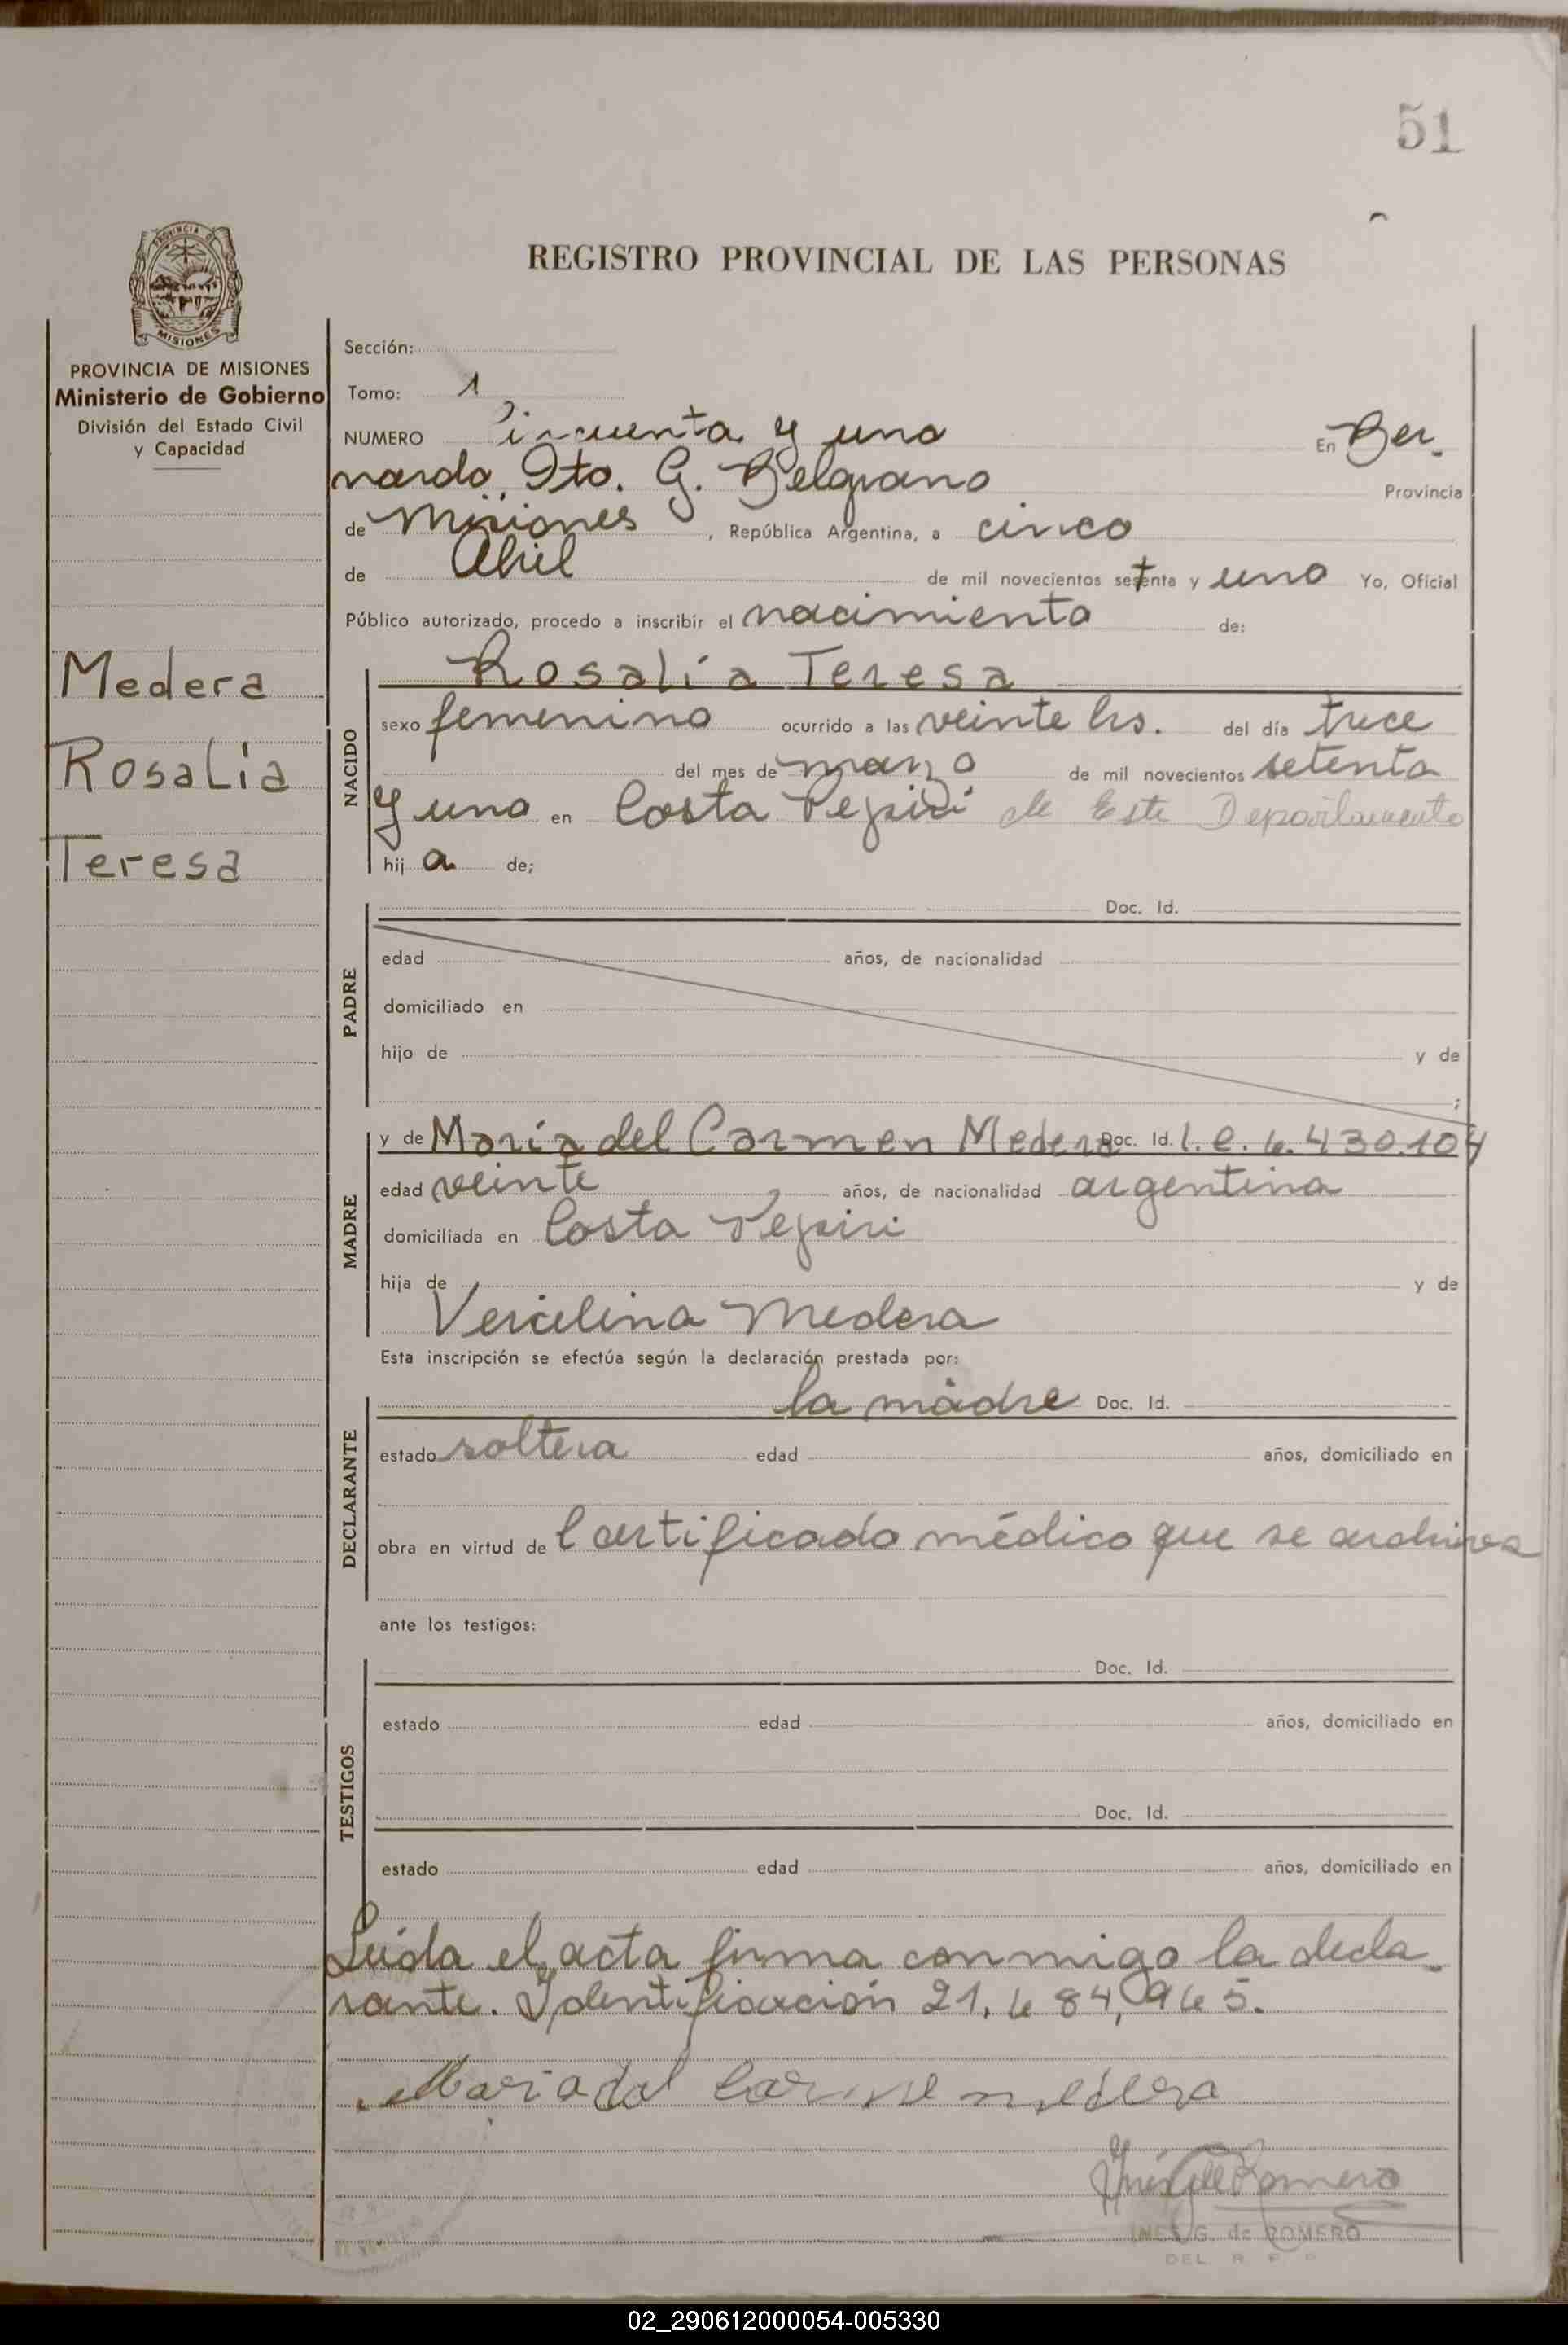 51
REGISTRO PROVINCIAL DE LAS PERSONAS
PROVINCIA DE MISIONES
Ministerio de Gobierno
División del Estado Civil
y Capacidad
Medera
Rosalía
Teresa
Sección:
Tomo: 1
NUMERO Cincuenta y uno En Ber-
nardo Dto. G. Belgrano Provincia
de Misiones, República Argentina, a cinco
de Abril de mil novecientos setenta y uno Yo, Oficial
Público autorizado, procedo a inscribir el nacimiento de:
NACIDO
Rosalía Teresa
sexo femenino ocurrido a las veinte hs. del día trece
del mes de marzo de mil novecientos setenta
y uno en Costa Pepirí de Este Departamento
hija de;
PADRE
Doc. Id.
edad años, de nacionalidad
domiciliado en
hijo de y de
;
MADRE
y de María del Carmen Medera Doc. Id. l.e. 6.430.104
edad veinte años, de nacionalidad argentina
domiciliada en Costa Pepiri
hija de y de
Vercelina Medera
Esta inscripción se efectúa según la declaración prestada por:
DECLARANTE
la madre Doc. Id.
estado soltera edad años, domiciliado en
obra en virtud de Certificado médico que se archiva
ante los testigos:
TESTIGOS
Doc. Id.
estado edad años, domiciliado en
Doc. Id.
estado edad años, domiciliado en
Leída el acta firma conmigo la decla-
rante. Identificación 21.684,965.
Maria del Carme medera
INES G. de ROMERO
02_290612000054-005330